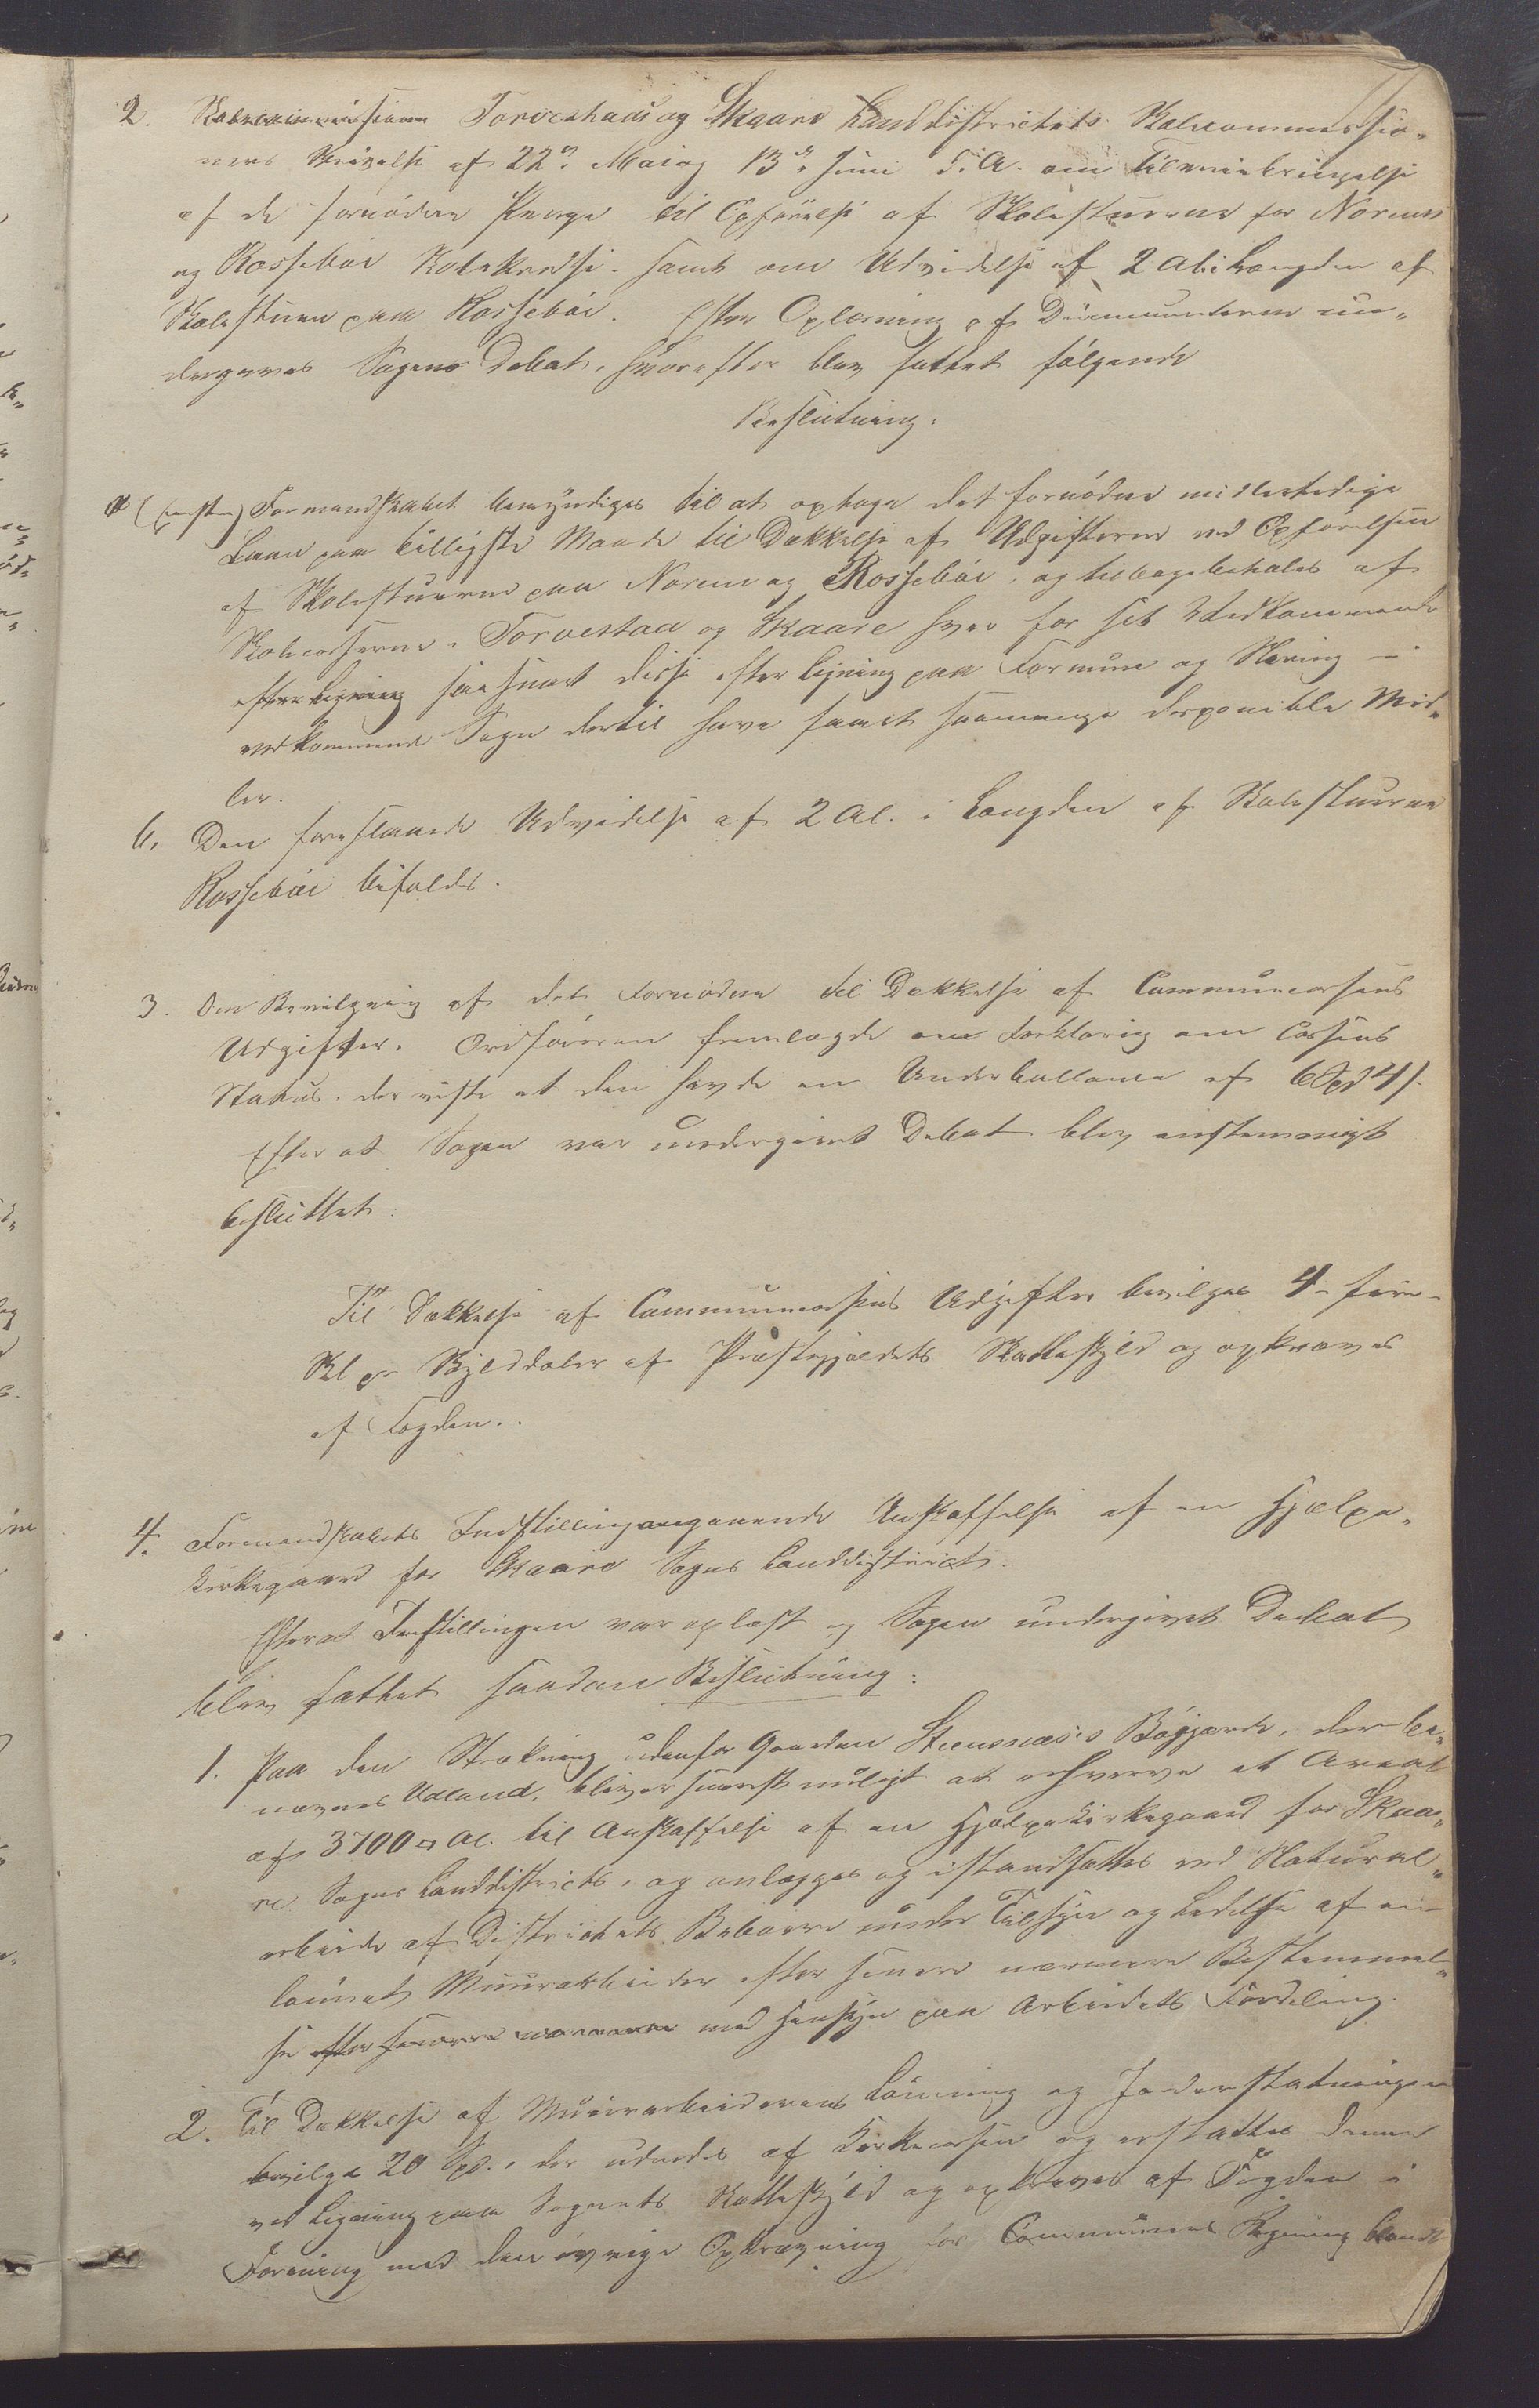 2. Skolecommissionen Torvestads og Skaare Landdistrichts Skolecommissio-
ners Skrivelse af 22de Mai og 13de Juni d. A. om Tilveiebringelse
af de fornödne Penge til Opförelse af Skolestuerne for Norem
og Rosseböe Kolekredse. samt om Udvidelse af 2 Al i Længden af
Skolestuen paa Rosseböe. Efter Oplæsning af Documenterne un-
dergaves Sagens Debat, hvorefter blev fattet fölgende
Beslutning:
a (eenst) Formandskabet bemyndiges til at optage det fornödne midlertidige
Laan paa billigste Maade til Dækkelse af Udgifterne ved Opförelsen
af Skolestuerne paa Norem og Rosseböe, og tilbagebetales af
Skolecasserne i Torvestad og Skaare hver for sit Vedkommende
efter Ligning saasnart disse efter Ligning paa Formue og Næring i
vedkommende Sogn dertil have faaet saamange disponible Mid-
ler.
b. Den foreslaaede Udvidelse af 2 Al. i Længden af Skolestuerne
Rosseböe bifaldes.
3. Om Bevilgning af det Fornödne til Dækkelse af Communecassens
Udgifter. Ordföreren fremlagde en Forklaring om Cassens
Status. der viste at den havde en Underballance af 6 Spd 4 ß.
Efter at Sagen var undergivet Debat blev enstemmigt
besluttet:
Til Dækkelse af Communecassens Udgifter bevilges 4 - fire -
Sk pr Skylddaler af Præstegjældets Matteskyld og opkræves
af Fogden..
4. Formandskabets Indstilling angaaende Anskaffelse af en Hjælpe-
kirkegaard for Skaare Sogns Landdistrict.
Efterat Indstillingen var oplæst og Sagen undergivet Debat
blev fattet saadan Beslutning:
1. Paa den Strækning udenfor Gaarden Steensnæs's Bögjærde, der be-
nævnes Udland, bliver snarest muligt at erhverve et Areal
af 3700 □ Al. til Anskaffelse af en Hjælpekirkegaard for Skaa-
re Sogns Landdistricts, og anlægges og istandsættes ved Natural-
arbeide af Districtets Beboere under Tilsyn og Ledelse af en
lönnet Muurarbeider efter senere nærmere Bestemmel-
se efter senere nærmere med Hensyn paa Arbeidets Fordeling.
2. Til Dækkelse af Muurarbeiderens Lönning og Jorderstatningen
bevilges 20 Spd., der udredes af Kirkecassen og erstattes denne
ved Ligning paa Sognets Matteskyld og opkræves af Fogden i
Forening med den övrige Opkrævning for Communens Regning blandt